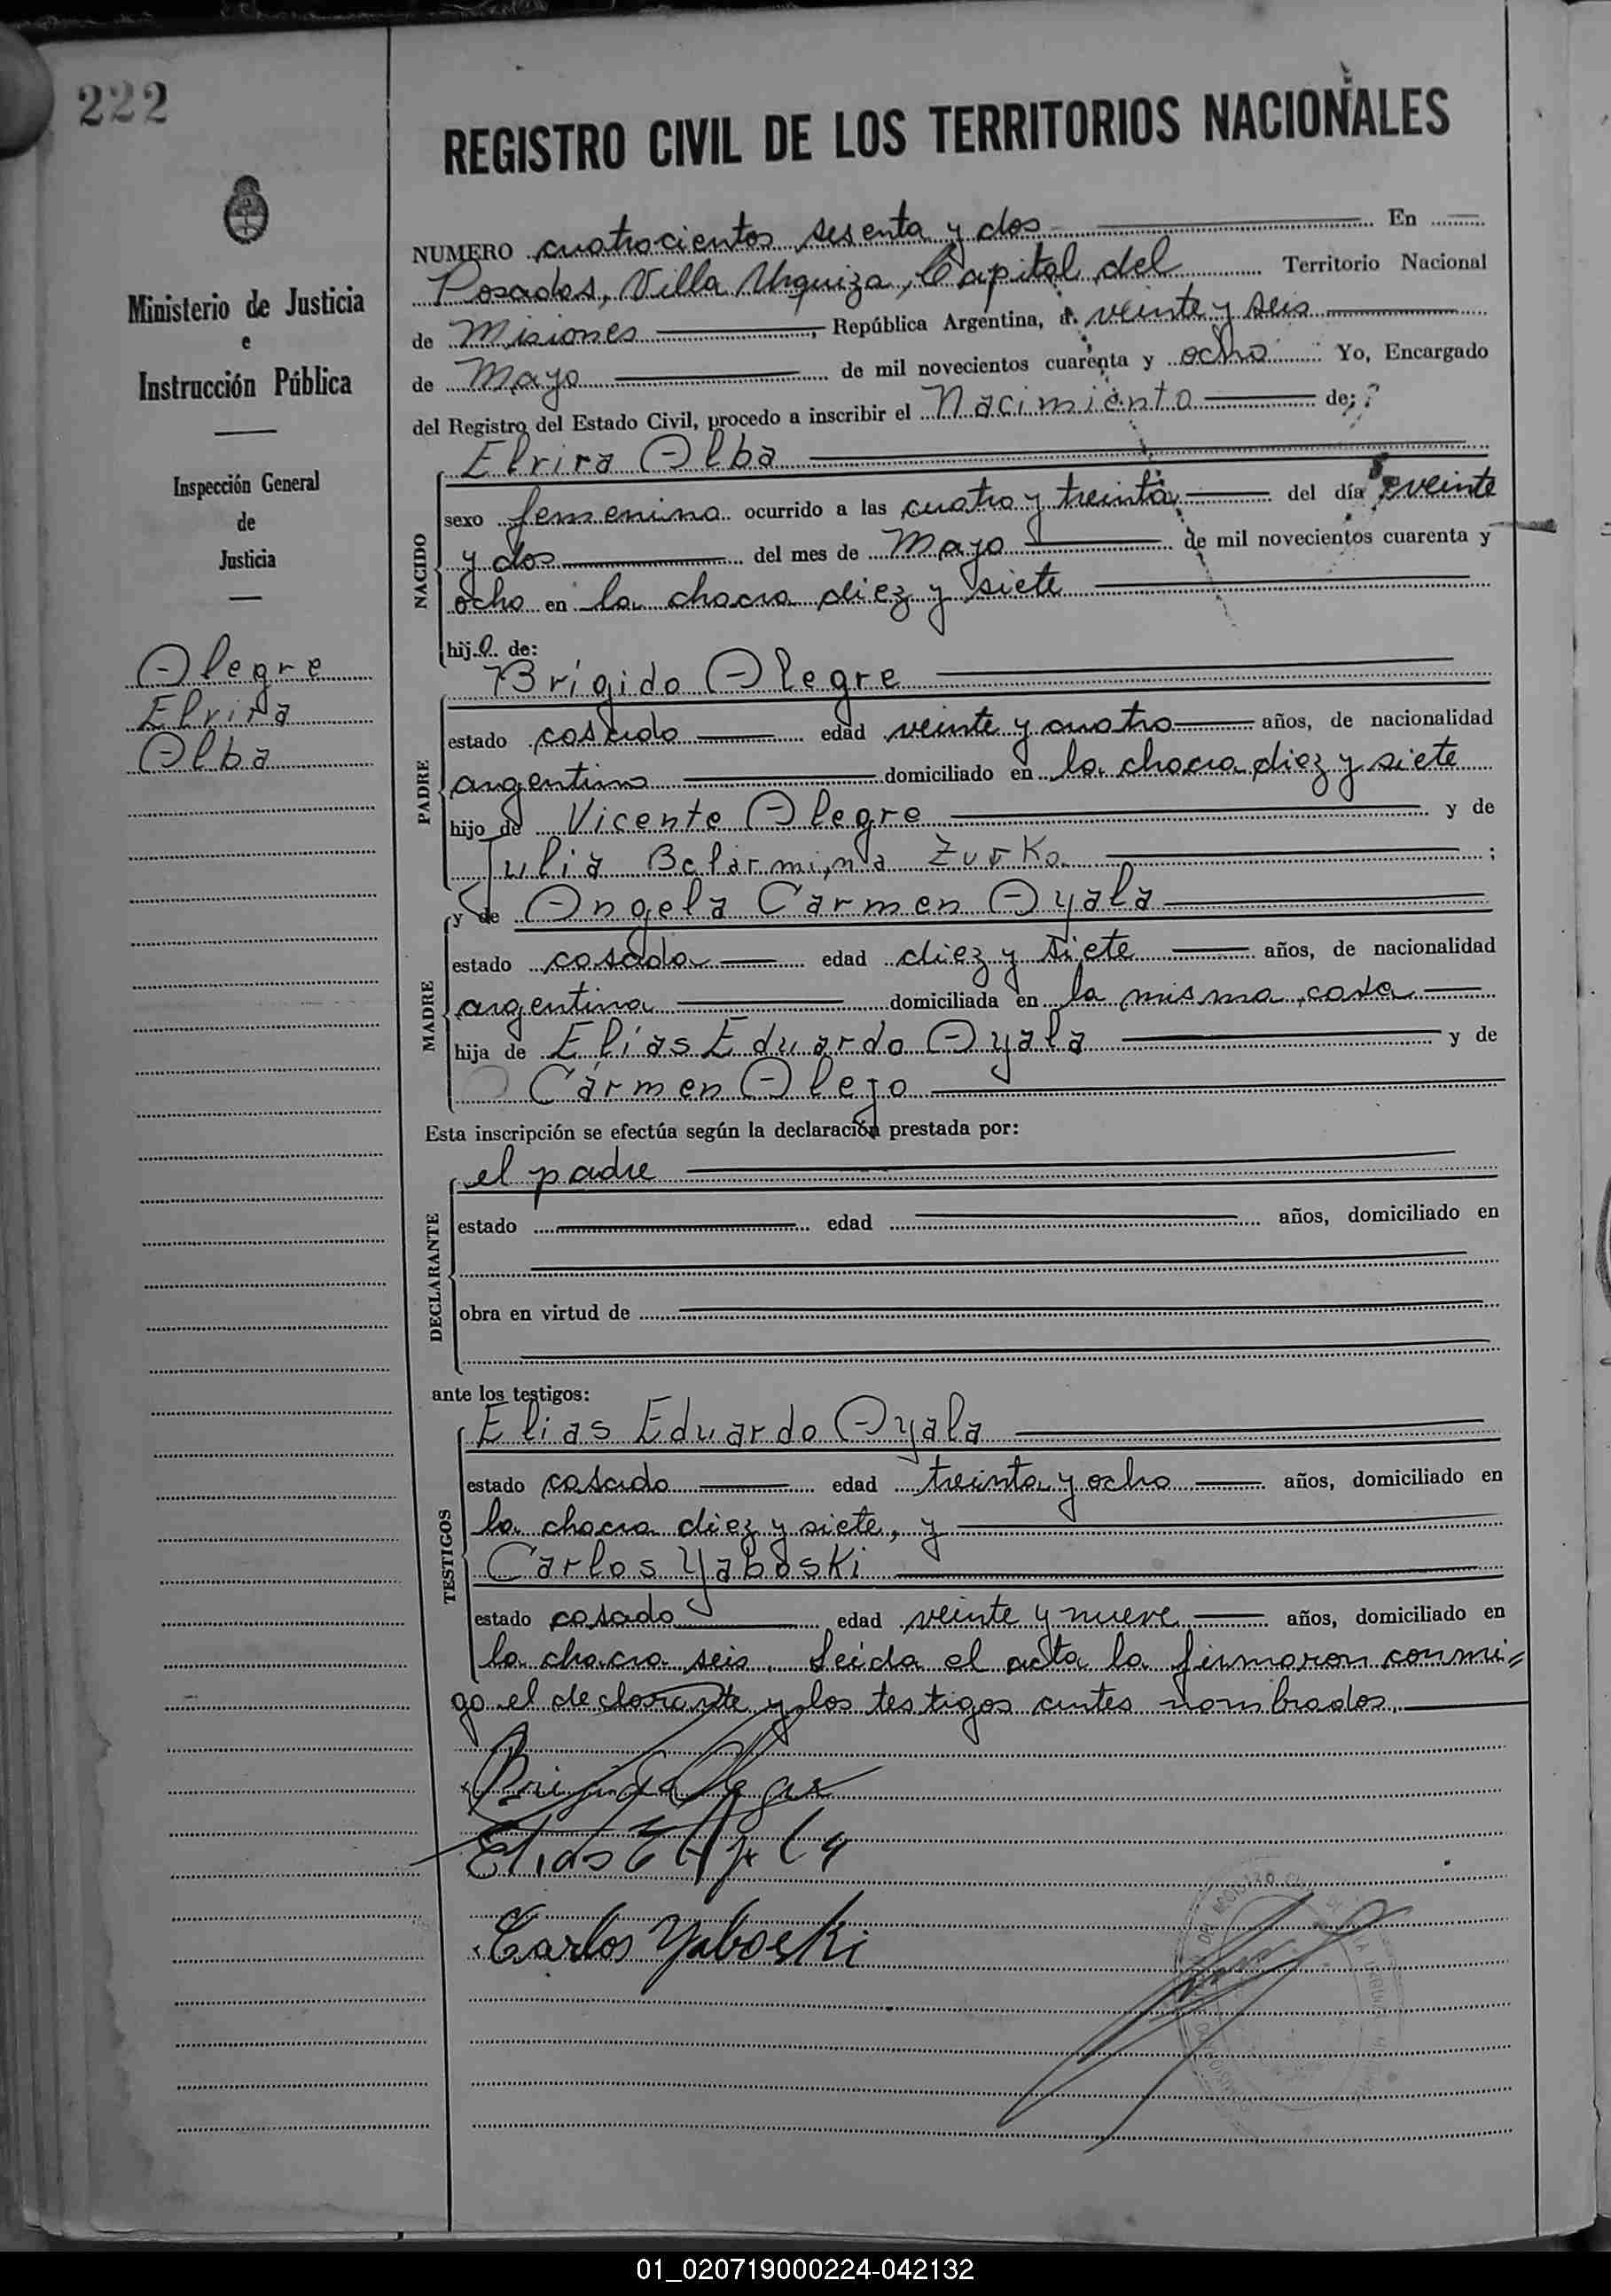 222
REGISTRO CIVIL DE LOS TERRITORIOS NACIONALES
Ministerio de Justicia
e
Instrucción Pública
Inspección General
de
Justicia
Alegre
Elvira
Alba
NUMERO cuatrocientos sesenta y dos En
Posadas, Villa Urquiza, Capital del Territorio Nacional
de Misiones, República Argentina, a veinte y seis
de Mayo de mil novecientos cuarenta y ocho Yo, Encargado
del Registro del Estado Civil, procedo a inscribir el Nacimiento de:
Elvira Alba
NACIDO
sexo femenino ocurrido a las cuatro y treinta del día veinte
y dos del mes de Mayo de mil novecientos cuarenta y
ocho en la chacra diez y siete
hija de:
Brígido Alegre
PADRE
estado casado edad veinte y cuatro años, de nacionalidad
argentino domiciliado en la chacra diez y siete
hijo de Vicente Alegre y de
Julia Belarmina ;
y de Angela Carmen Ayala
MADRE
estado casada edad diez y siete años, de nacionalidad
argentina domiciliada en la misma casa
hija de Elías Eduardo Ayala y de
Cármen Alejo
Esta inscripción se efectúa según la declaración prestada por:
el padre
DECLARANTE
estado edad años, domiciliado en
obra en virtud de
ante los testigos:
Elias Eduardo Ayala
TESTIGOS
estado casado edad treinta y ocho años, domiciliado en
la chacra diez y siete, y
Carlos Yaboski
estado casado edad veinte y nueve años, domiciliado en
la chacra seis. Leída el acta la firmaron conmi=
go el declarante y los testigos antes nombrados.
Brigido Alegre
Elias E Ayala
Carlos Yaboski
01_020719000224-042132